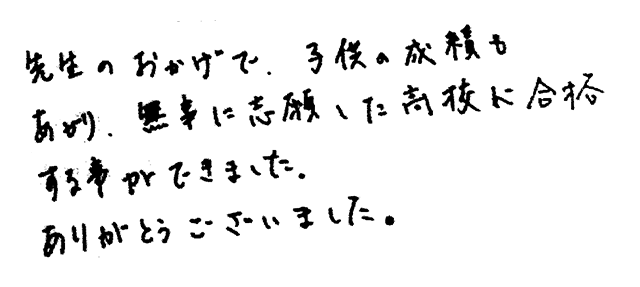 先生のおかげで、子供の成積も
あがり、無事に志願した高校に合格
する事ができました。
ありがとうございました。